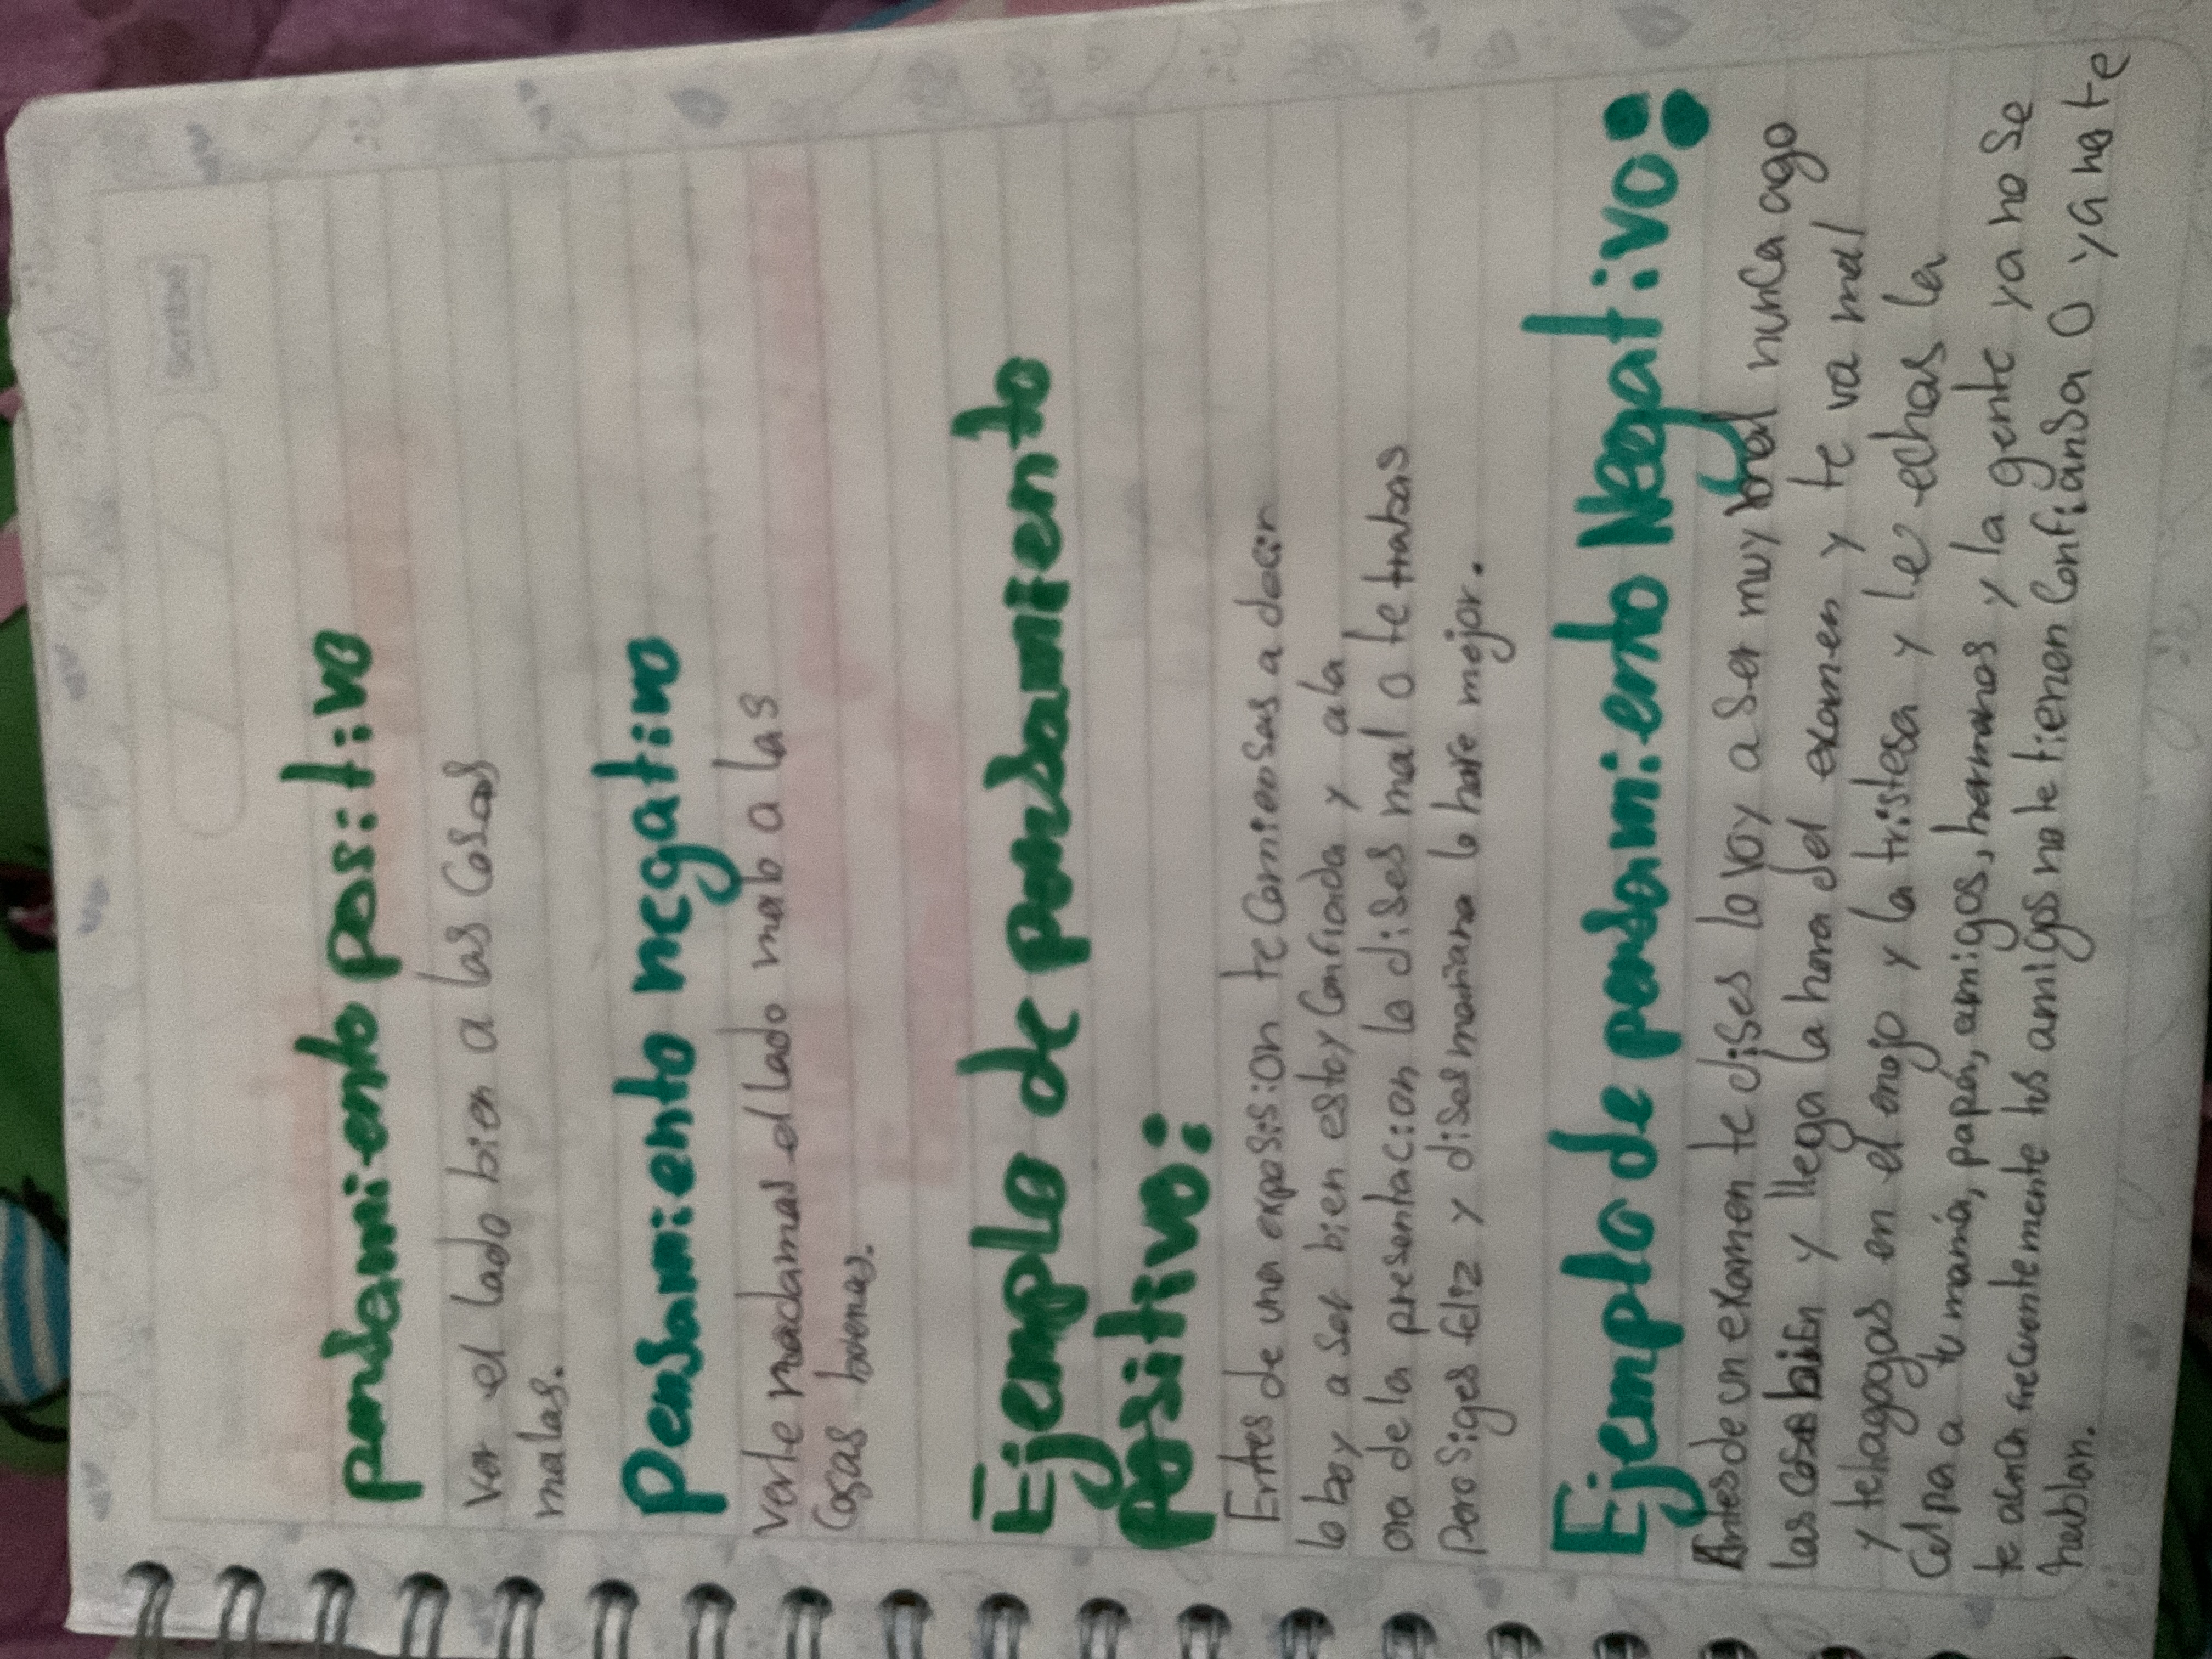 pensamiento positivo
Ver el lado bien a las Cosas
malas.
Pensamiento negativo
verle nadamas el lado malo a las
Cosas buenas.
Ejemplo de pensamiento
positivo:
Entes de una exposision te Comiensas a decir
lo boy a ser bien estoy Confiada y ala
ora de la presentacion lo dises mal o te trabas
pero siges feliz y dises mañana lo hare mejor.
Ejemplo de pensamiento Negativo:
Antes de un examen te dises lo voy a ser muy mal nunca ago
las cosas bien y llega la hora del examen y te va mal
y te hagogas en el enojo y la tristesa y le echas la
Culpa a tu mamá, papá, amigos, hermanos y la gente ya no se
te acerca frecuentemente tus amigos no te tienen Confiansa O ya no te
hablan.
Scribe